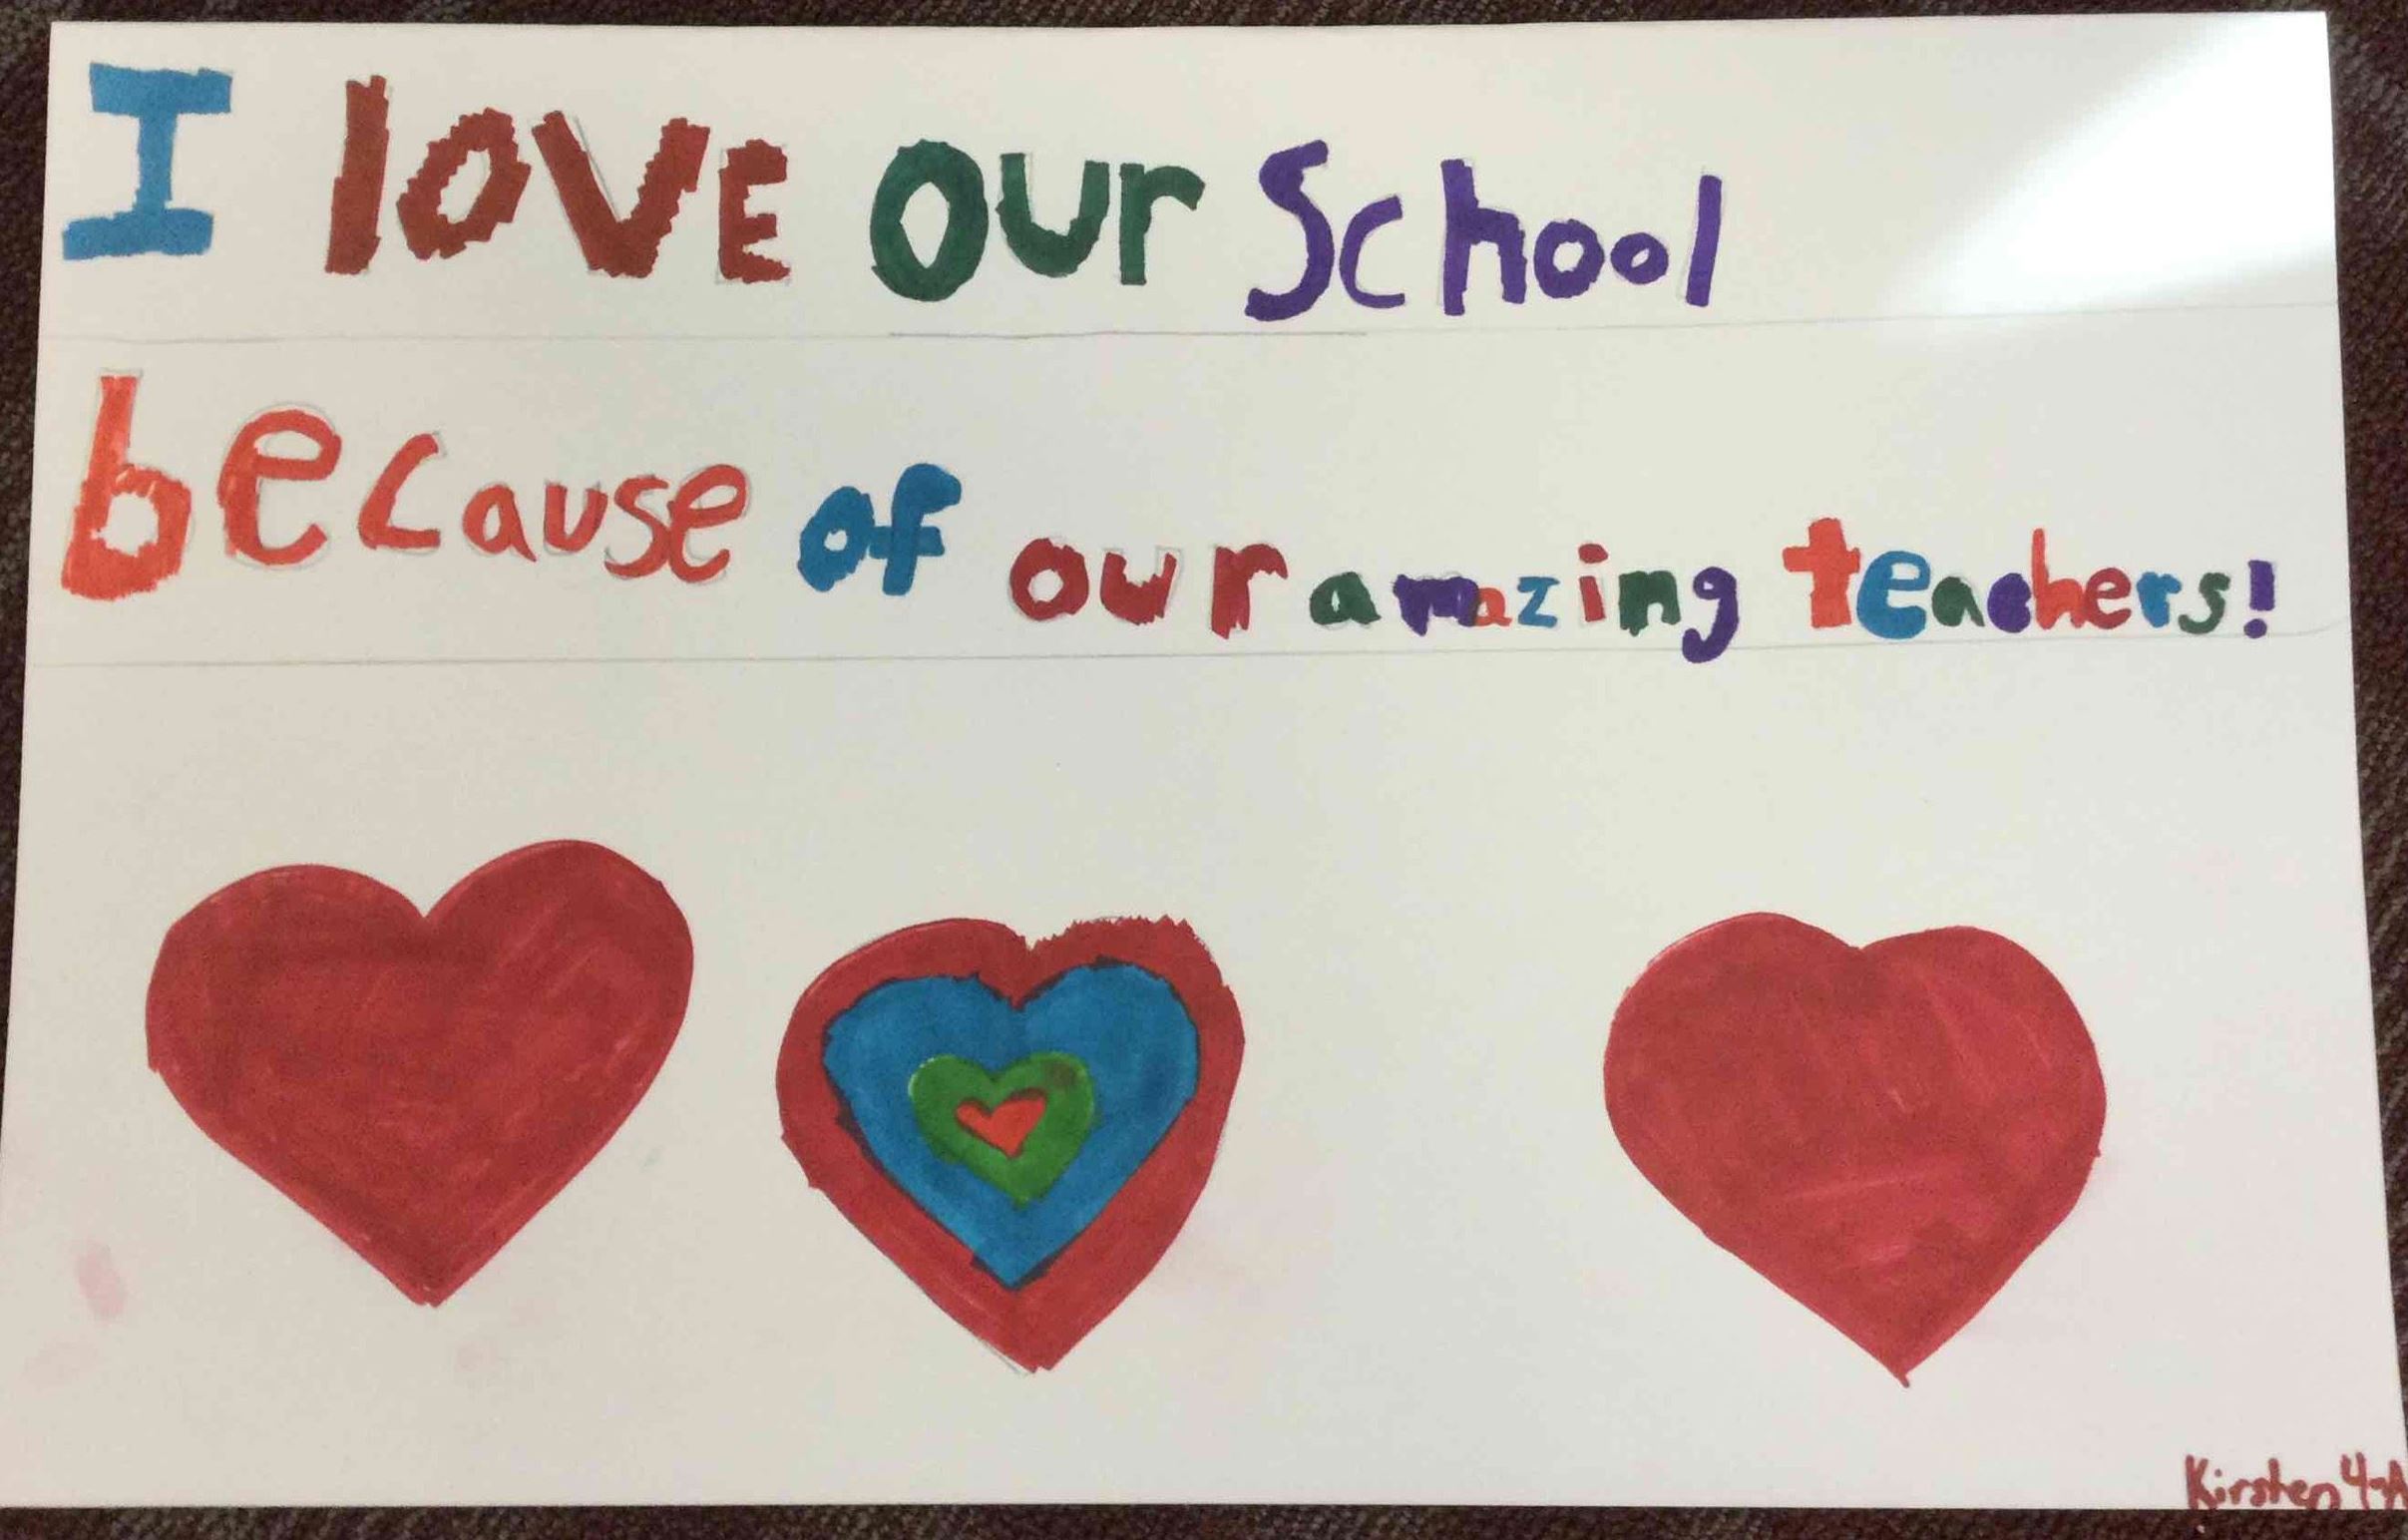 I love our School
because of our amazing teachers!
Kirsten 4-A